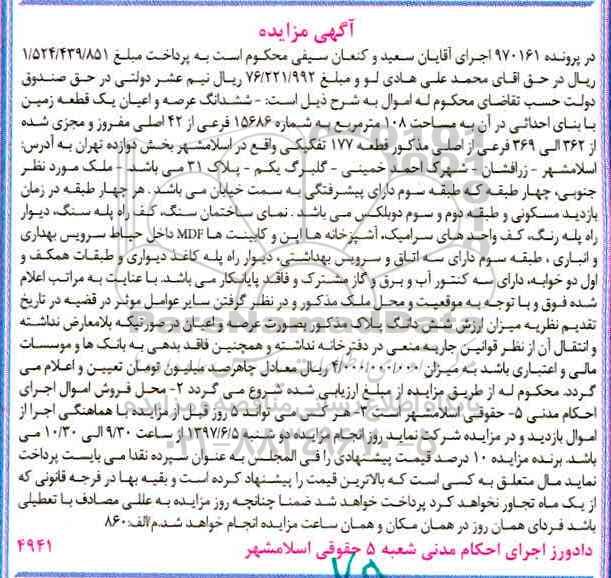 آگهی مزایده
در پرونده ۹۷۰۱۶۱ اجرای آقایان سعید و کنعان سیفی محکوم است به پرداخت مبلغ ۱/۵۲۴/۴۳۹/۸۵۱
ریال در حق اقای محمد علی هادی لو و مبلغ ۷۶/۲۲۱/۹۹۲ ریال نیم عشر دولتی در حق صندوق
دولت حسب تقاضای محکوم له اموال به شرح ذیل است: - ششدانگ عرصه و اعیان یک قطعه زمین
با بنای احداثی در آن به مساحت ۱۰۸ مترمربع به شماره ۱۵۶۸۶ فرعی از ۴۲ اصلی مفروز و مجزی شده
از ۳۶۲ الی ۳۶۹ فرعی از اصلی مذکور قطعه ۱۷۷ تفکیکی واقع در اسلامشهر بخش دوازده تهران به آدرس:
اسلامشهر - زرافشان - شهرک احمد خمینی - گلبرگ یکم - پلاک ۳۱ می باشد. - ملک مورد نظر
جنوبی، چهار طبقه که طبقه سوم دارای پیشرفتگی به سمت خیابان می باشد. هر چهار طبقه در زمان
بازدید مسکونی و طبقه دوم و سوم دوبلکس می باشد. نمای ساختمان سنگ، کف راه پله سنگ، دیوار
راه پله رنگ، کف واحد های سرامیک، آشپزخانه ها اپن و کابینت ها MDF داخل حیاط سرویس بهداری
و انباری، طبقه سوم دارای سه اتاق و سرویس بهداشتی، دیوار راه پله کاغذ دیواری و طبقات همکف و
اول دو خوابه، دارای سه کنتور آب و برق و گاز مشترک و فاقد پایانکار می باشد. با عنایت به مراتب اعلام
شده فوق و با توجه به موقعیت و محل ملک مذکور و در نظر گرفتن سایر عوامل موثر در قضیه در تاریخ
تقدیم نظریه میزان ارزش شش دانگ پلاک مذکور بصورت عرصه و اعیان در صورتیکه بلامعارض نداشته
و انتقال آن از نظر قوانین جاریه منعی در دفترخانه نداشته و همچنین فاقد بدهی به بانک ها و موسسات
مالی و اعتباری باشد به میزان ۴/۰۰۰/۰۰۰/۰۰۰ ریال معادل چاهرصد میلیون تومان تعیین و اعلام می
گردد. محکوم له از طریق مزایده از مبلغ ارزیابی شده شروع می گردد ۲- محل فروش اموال اجرای
احکام مدنی ۵- حقوقی اسلامشهر است ۳- هر کس می تواند ۵ روز قبل از مزایده با هماهنگی اجرا از
اموال بازدید و در مزایده شرکت نماید روز انجام مزایده دو شنبه ۱۳۹۷/۶/۵ از ساعت ۹/۳۰ الی ۱۰/۳۰ می
باشد. برنده مزایده ۱۰ درصد قیمت پیشنهادی را فی المجلس به عنوان سپرده نقدا می بایست پرداخت
نماید مال متعلق به کسی است که بالاترین قیمت را پیشنهاد کرده است و بقیه بها در فرجه قانونی که
از یک ماه تجاوز نخواهد کرد پرداخت خواهد شد ضمنا چنانچه روز مزایده به عللی مصادف با تعطیلی
باشد فردای همان روز در همان مکان و همان ساعت مزایده انجام خواهد شد.م/الف:۸۶۰
دادورز اجرای احکام مدنی شعبه ۵ حقوقی اسلامشهر
۴۹۴۱